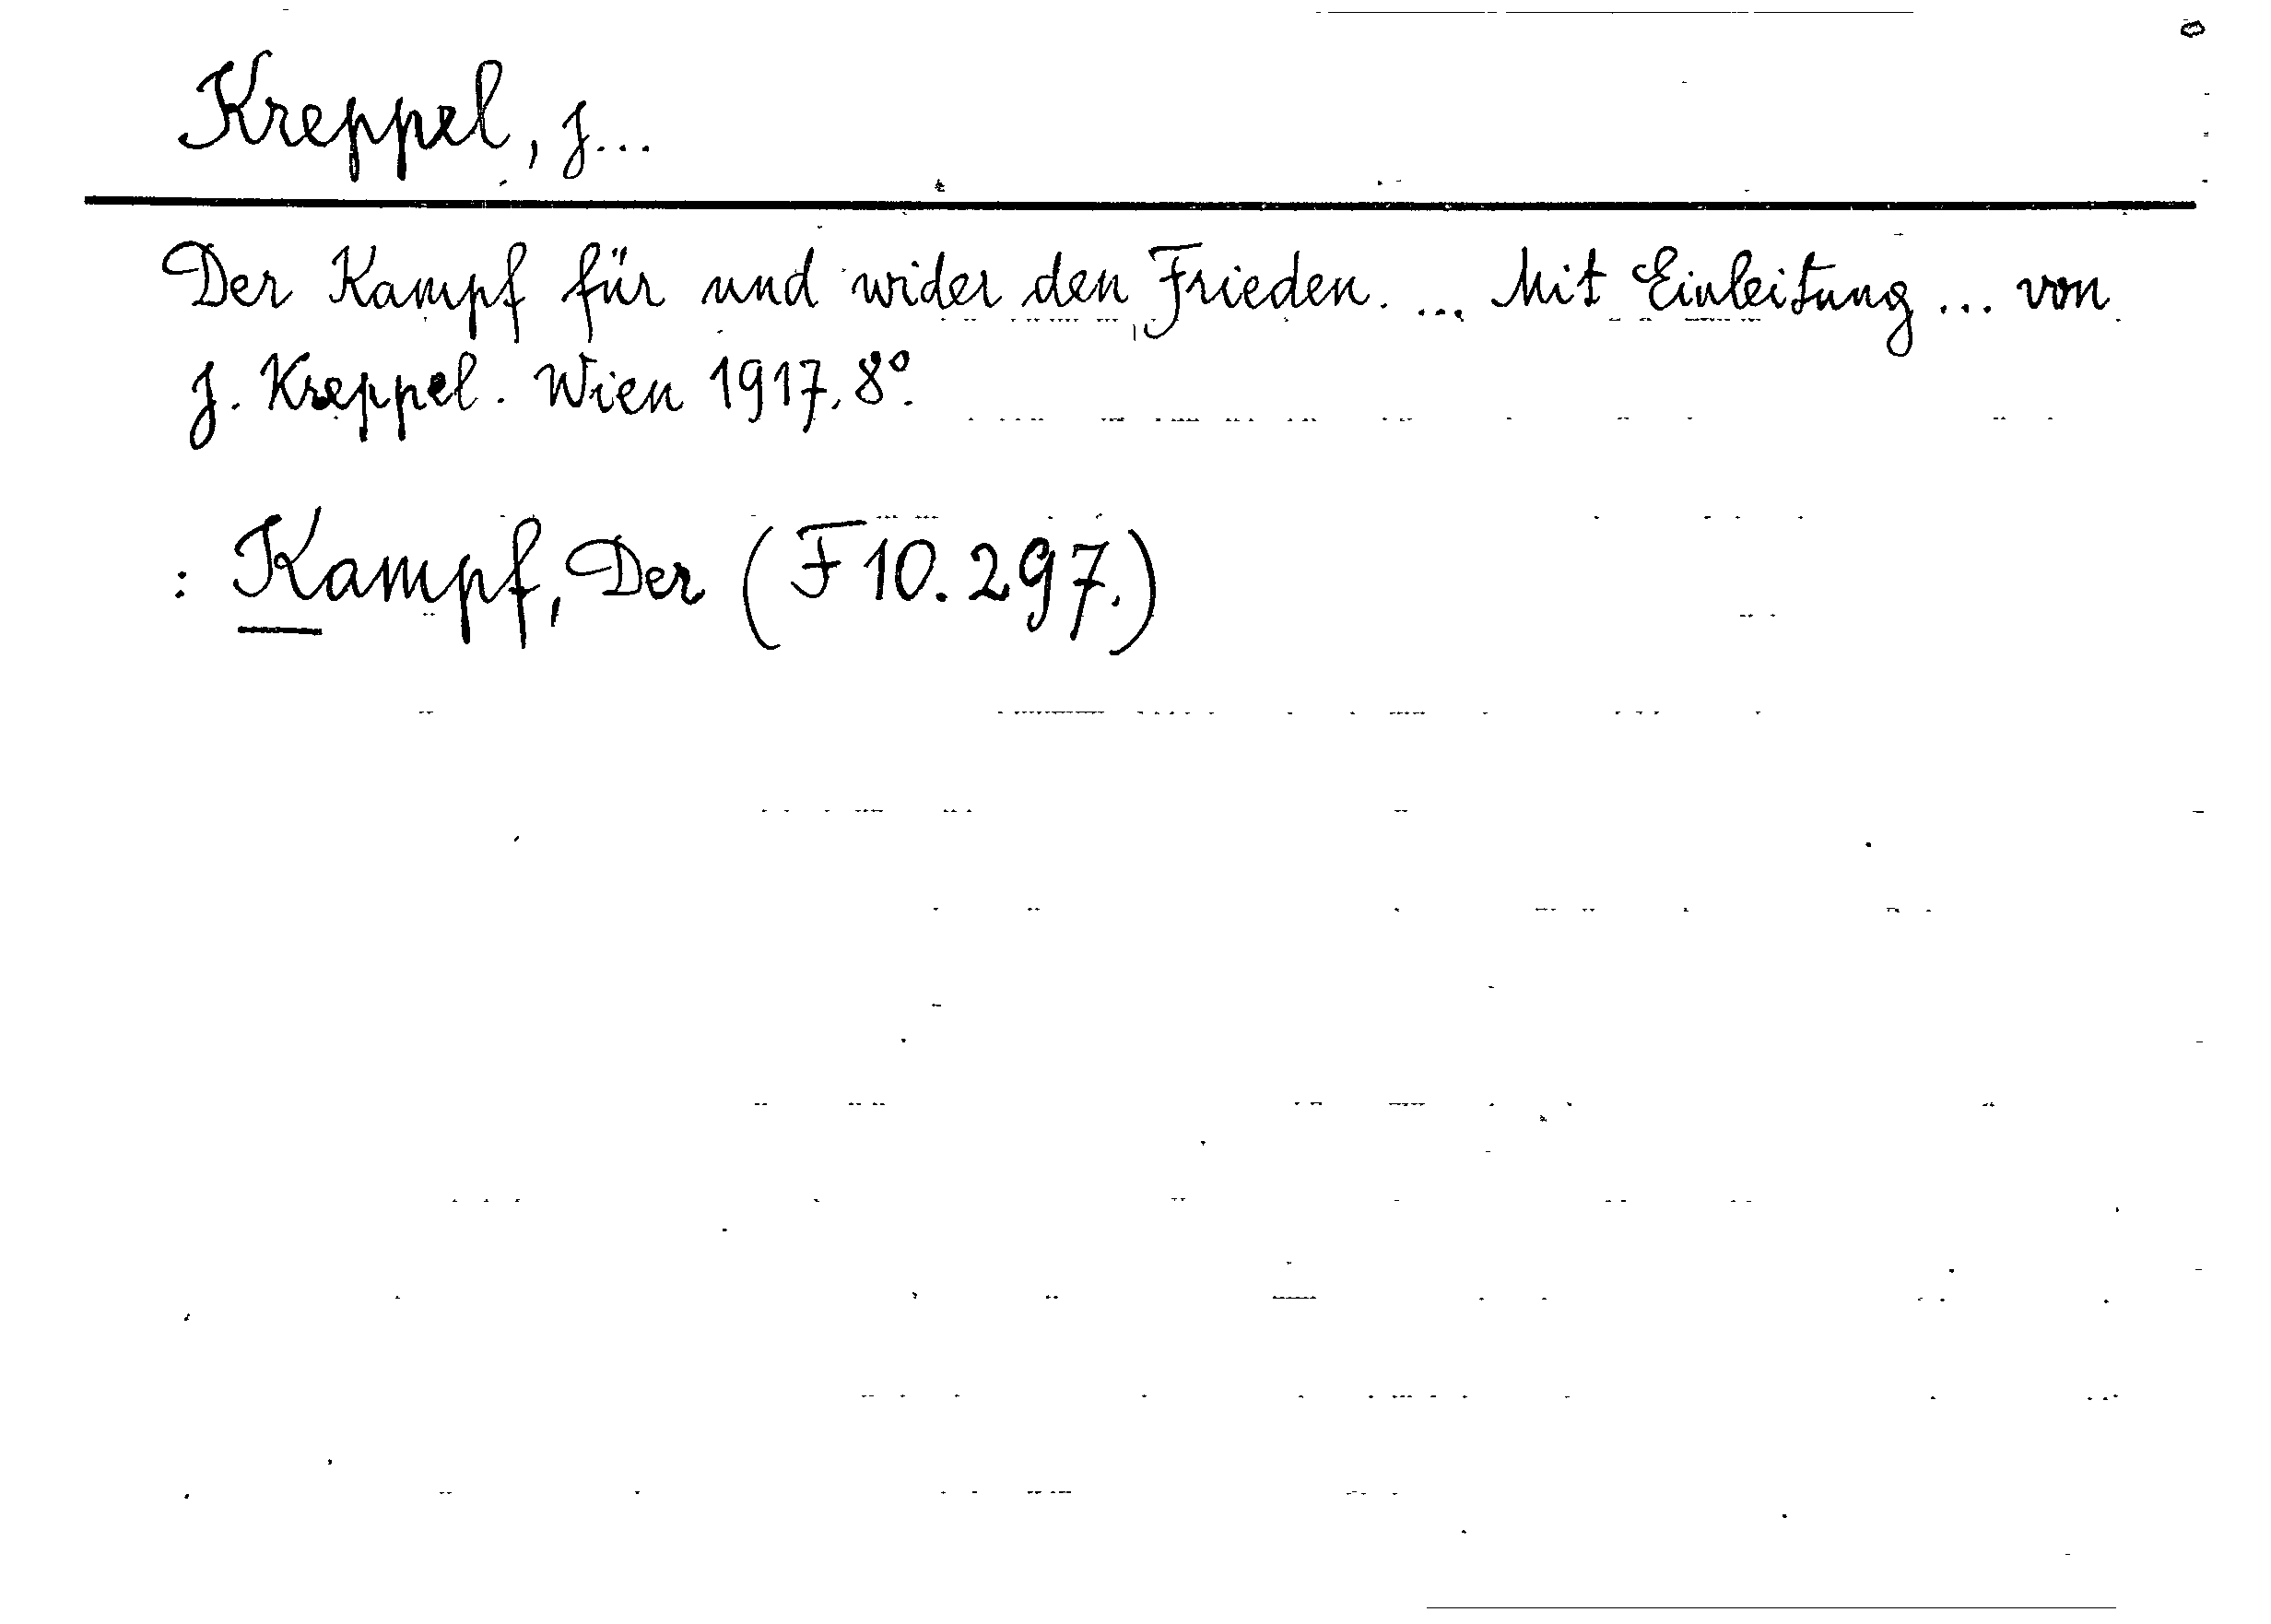 Kreppel, J...
Der Kampf für und wider den Frieden. ... Mit Einleitung ... von
J. Kreppel. Wien 1917. 8º.
: Kampf, Der (F 10.297.)